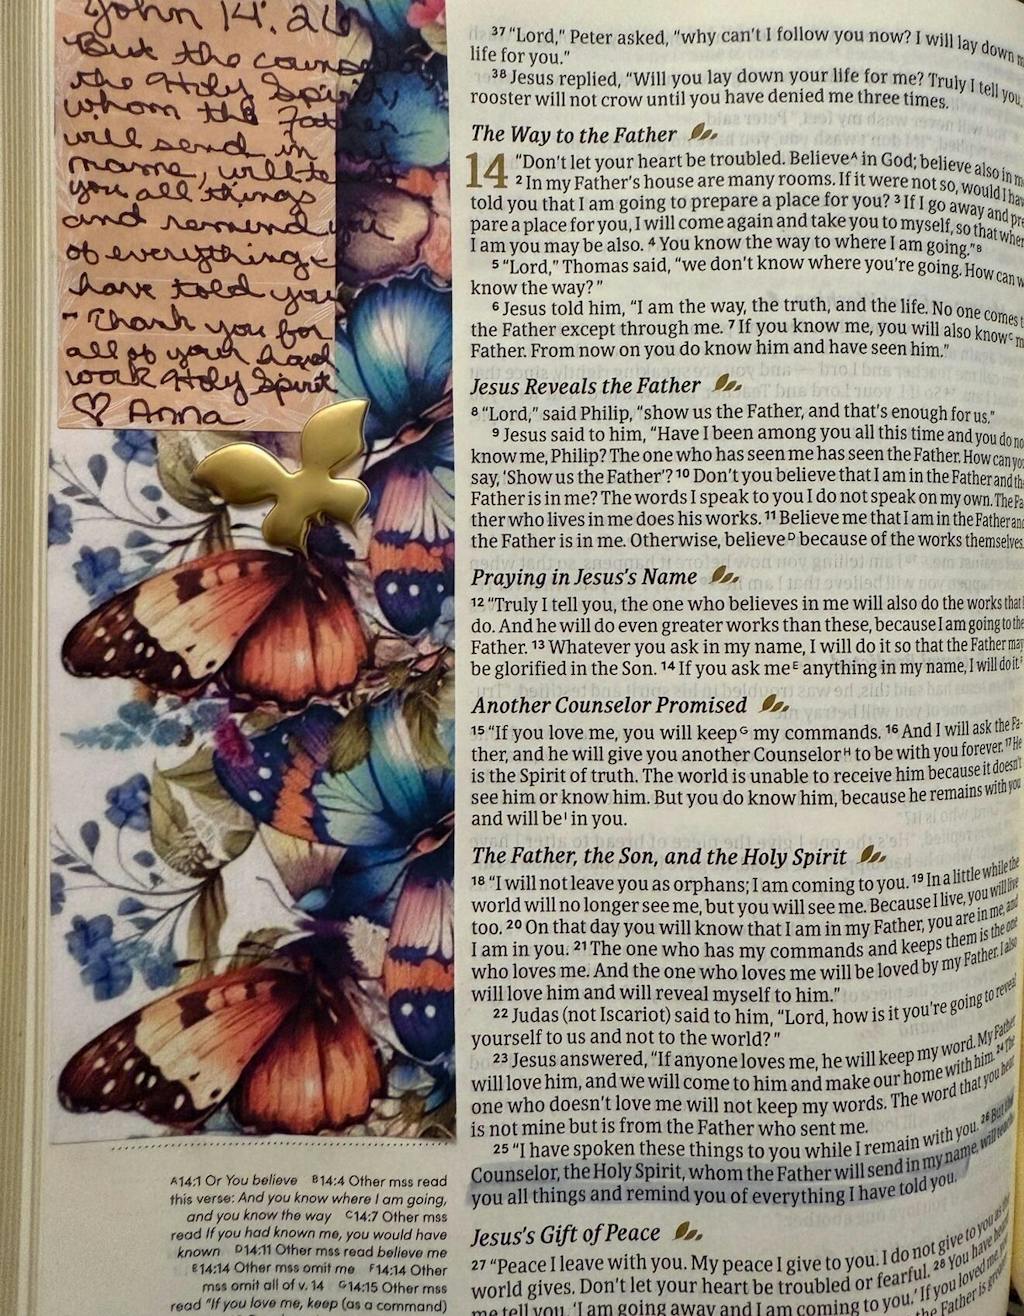 John 14:26
But the counselor
the Holy Spirit,
whom the Father
will send in
name, will te
you all things
and remind you
of everything I
have told you
- Thank you for
all of your hard
work Holy Spirit
♡ Anna
37 “Lord,” Peter asked, “why can’t I follow you now? I will lay down
life for you.”
38 Jesus replied, “Will you lay down your life for me? Truly I tell you,
rooster will not crow until you have denied me three times.
The Way to the Father
14 “Don’t let your heart be troubled. Believeᴬ in God; believe also in
2 In my Father’s house are many rooms. If it were not so, would I
told you that I am going to prepare a place for you? 3 If I go away and pre
pare a place for you, I will come again and take you to myself, so that
I am you may be also. 4 You know the way to where I am going.”ᴮ
5 “Lord,” Thomas said, “we don’t know where you’re going. How can
know the way?”
6 Jesus told him, “I am the way, the truth, and the life. No one comes
the Father except through me. 7 If you know me, you will also knowᶜ
Father. From now on you do know him and have seen him.”
Jesus Reveals the Father
8 “Lord,” said Philip, “show us the Father, and that’s enough for us.”
9 Jesus said to him, “Have I been among you all this time and you do
know me, Philip? The one who has seen me has seen the Father. How can
say, ‘Show us the Father’? 10 Don’t you believe that I am in the Father and
Father is in me? The words I speak to you I do not speak on my own. The Fa
ther who lives in me does his works. 11 Believe me that I am in the Father and
the Father is in me. Otherwise, believeᴰ because of the works themselves.
Praying in Jesus’s Name
12 “Truly I tell you, the one who believes in me will also do the works that
do. And he will do even greater works than these, because I am going to the
Father. 13 Whatever you ask in my name, I will do it so that the Father may
be glorified in the Son. 14 If you ask meᴱ anything in my name, I will do it.
Another Counselor Promised
15 “If you love me, you will keepᴳ my commands. 16 And I will ask the Fa-
ther, and he will give you another Counselorᴴ to be with you forever. 17 He
is the Spirit of truth. The world is unable to receive him because it doesn’t
see him or know him. But you do know him, because he remains with you
and will beᴵ in you.
The Father, the Son, and the Holy Spirit
18 “I will not leave you as orphans; I am coming to you. 19 In a little while the
world will no longer see me, but you will see me. Because I live, you will live
too. 20 On that day you will know that I am in my Father, you are in me, and
I am in you. 21 The one who has my commands and keeps them is the one
who loves me. And the one who loves me will be loved by my Father. I also
will love him and will reveal myself to him.”
22 Judas (not Iscariot) said to him, “Lord, how is it you’re going to reveal
yourself to us and not to the world?”
23 Jesus answered, “If anyone loves me, he will keep my word. My Father
will love him, and we will come to him and make our home with him. 24 The
one who doesn’t love me will not keep my words. The word that you hear
is not mine but is from the Father who sent me.
25 “I have spoken these things to you while I remain with you. 26 But the
Counselor, the Holy Spirit, whom the Father will send in my name, will teach
you all things and remind you of everything I have told you.
Jesus’s Gift of Peace
27 “Peace I leave with you. My peace I give to you. I do not give to you as the
world gives. Don’t let your heart be troubled or fearful. 28 You have heard
me tell you, ‘I am going away and I am coming to you.’ If you loved me,
ᴬ14:1 Or You believe ᴮ14:4 Other mss read
this verse: And you know where I am going,
and you know the way ᶜ14:7 Other mss
read If you had known me, you would have
known ᴰ14:11 Other mss read believe me
ᴱ14:14 Other mss omit me ᶠ14:14 Other
mss omit all of v. 14 ᴳ14:15 Other mss
read “If you love me, keep (as a command)